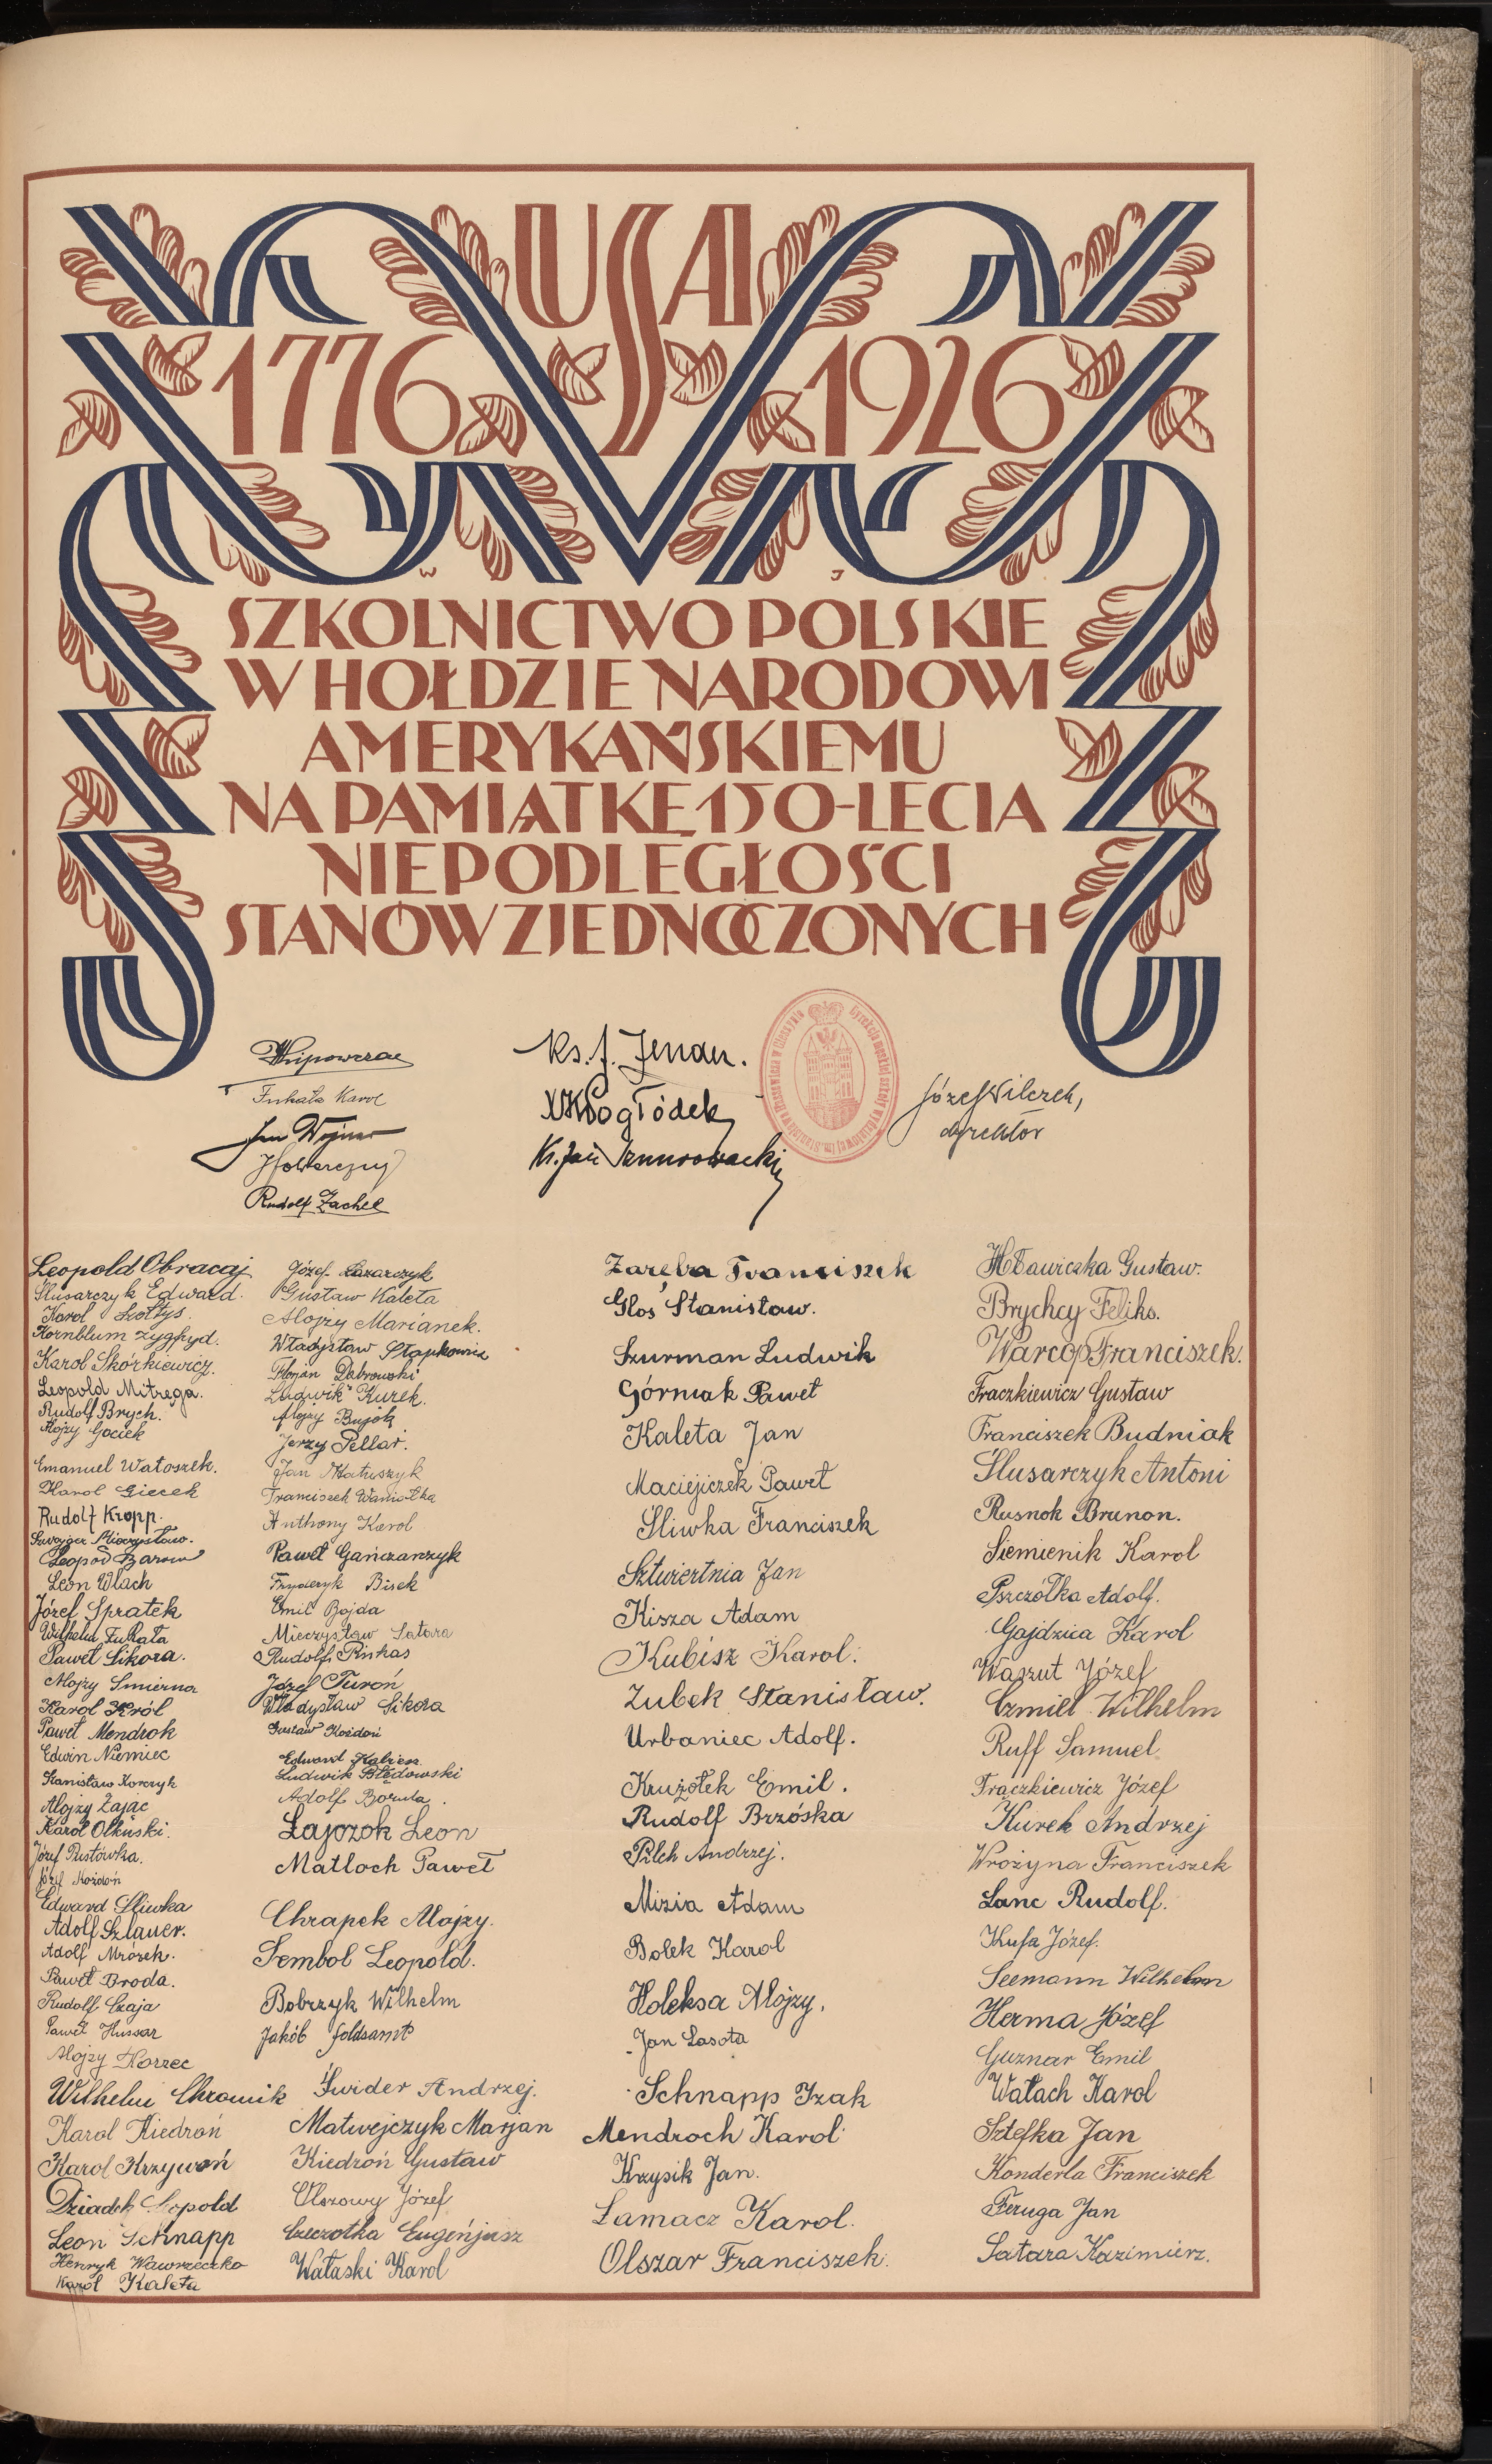 USA
1776 1926
W J
SZKOLNICTWO POLSKIE
W HOŁDZIE NARODOWI
AMERYKAŃSKIEMU
NA PAMIĄTKĘ 150-LECIA
NIEPODLEGŁOŚCI
STANÓW ZJEDNOCZONYCH
Fukała Karol
Jan Wojnar
Rudolf Zachel
Ks. J.
Ks. Jan
Józef Wilczek,
dyrektor
Leopold Obracaj
Ślusarczyk Edward.
Karol Szołtys.
Kornblum Zygfryd.
Karol Skórkiewicz.
Leopold Mitręga.
Rudolf Brych.
Alojzy Gociek
Emanuel Watoszek.
Karol Giecek
Rudolf Kropp.
Mieczysław.
Leopod
Leon Wlach
Józef Spratek
Wilhelm Fukała
Paweł Sikora.
Alojzy Śmierna
Karol Król
Paweł Mendrok
Edwin Niemiec
Stanisław Korczyk
Alojzy Zając
Karol Olkuski.
Józef Pustówka.
Józef Kożdoń
Edward Śliwka
Adolf Szlauer.
Adolf Mrózek.
Paweł Broda.
Rudolf Czaja
Paweł Hussar
Alojzy Norzec
Wilhelm Chromik
Karol Kiedroń
Karol Krzywoń
Dziadek Leopold
Leon Schnapp
Henryk Wawrzeczko
Karol Kaleta
Józef Łazarczyk
Gustaw Kaleta
Alojzy Marianek.
Władysław Słapkowicz
Florjan Dąbrowski
Ludwik Kurek.
Alojzy Bujok
Jerzy Pellar.
Jan Matuszyk
Franciszek Waniołka
Anthony Karol
Paweł Gańczarczyk
Fryderyk Bisek
Emil Bojda
Mieczysław Satora
Rudolf Pinkas
Józef Turoń
Władysław Sikora
Gustaw Kożdoń
Edward Kalisz
Ludwik Błędowski
Adolf Boruta.
Łajczok Leon
Matloch Paweł
Chrapek Alojzy.
Sembol Leopold.
Bobrzyk Wilhelm
Jakób Goldsamt
Świder Andrzej.
Matwejczyk Marjan
Kiedroń Gustaw
Olszowy Józef
Czeczotka Eugenjusz
Wałaski Karol
Zaręba Franciszek
Głos Stanisław.
Szurman Ludwik
Górniak Paweł
Kaleta Jan
Maciejiczek Paweł
Śliwka Franciszek
Sztwiertnia Jan
Kisza Adam
Kubisz Karol.
Zubek Stanisław.
Urbaniec Adolf.
Krużołek Emil.
Rudolf Brzóska
Pilch Andrzej.
Mizia Adam
Bolek Karol
Holeksa Alojzy.
Jan Lasota
Schnapp Izak
Mendroch Karol
Krzysik Jan.
Łamacz Karol.
Olszar Franciszek.
Hławiczka Gustaw.
Brychcy Feliks.
Warcop Franciszek.
Frączkiewicz Gustaw
Franciszek Budniak
Ślusarczyk Antoni
Rusnok Brunon.
Siemienik Karol
Pszczółka Adolf.
Gajdzica Karol
Waszut Józef
Czmiel Wilhelm
Ruff Samuel.
Frączkiewicz Józef
Kurek Andrzej
Wrożyna Franciszek
Lanc Rudolf.
Kufa Józef.
Seemann Wilhelm
Herma Józef
Guznar Emil
Wałach Karol
Sztefka Jan
Konderla Franciszek
Feruga Jan
Satara Kazimierz.